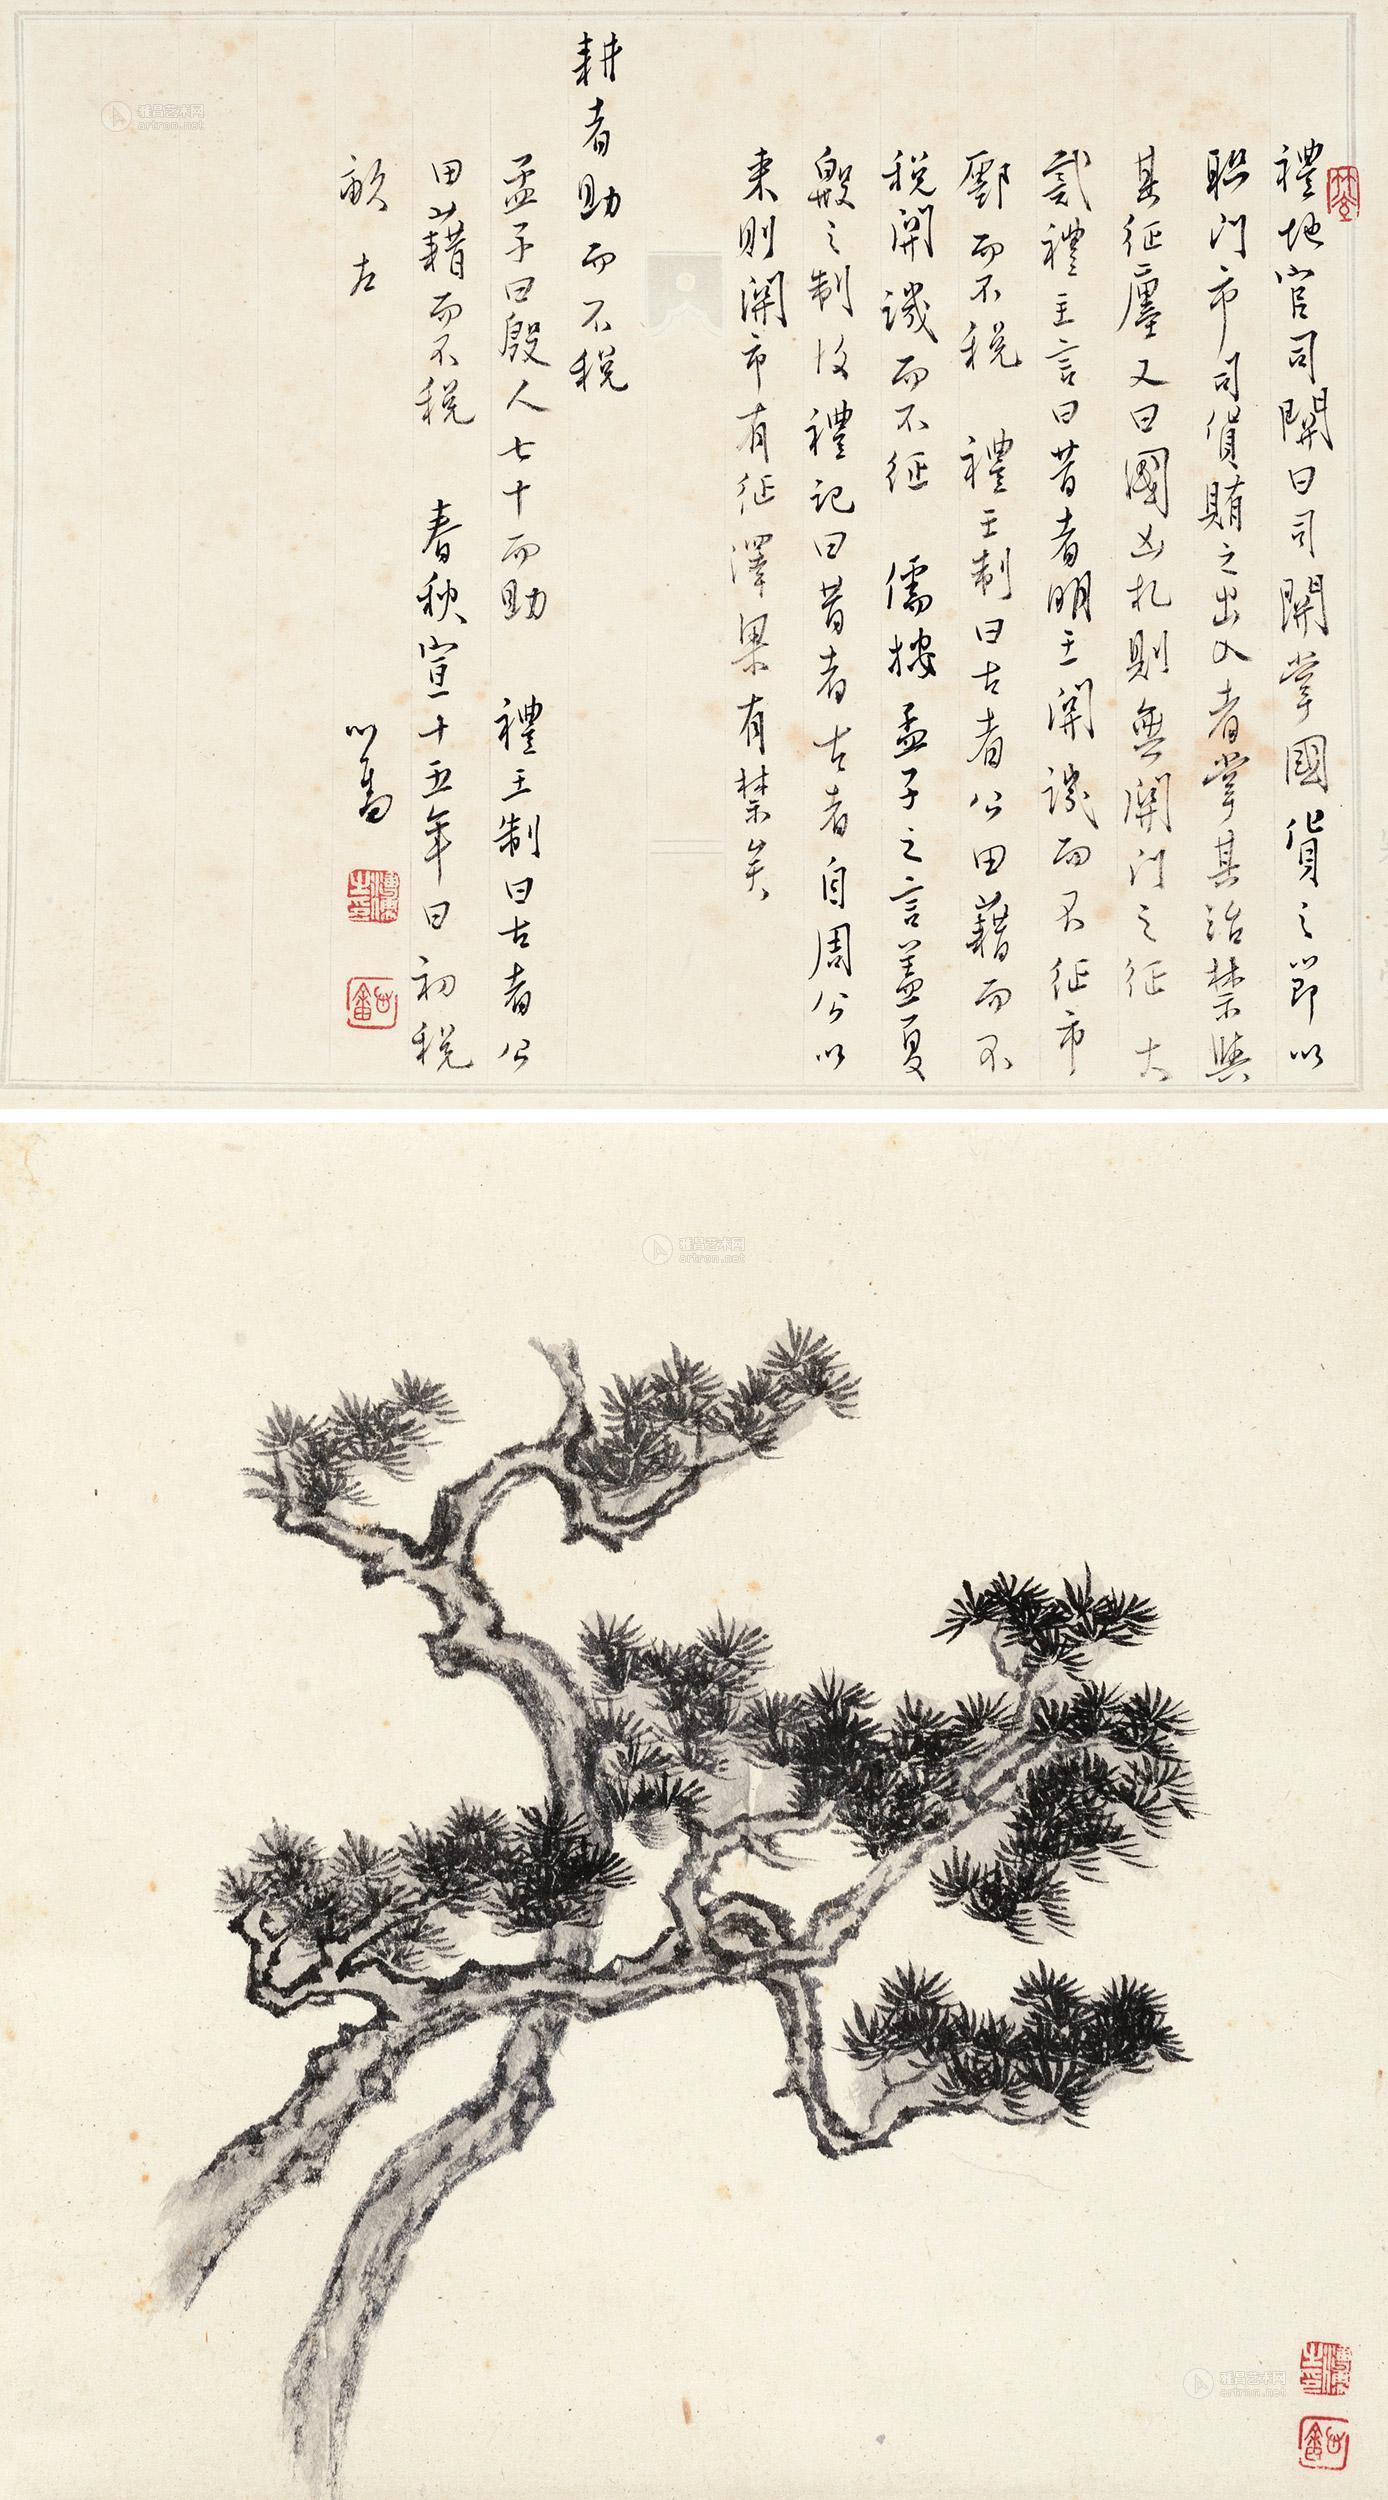 禮地官司關曰司關掌國貨之節以
聯門市司貨賄之出入者掌其治禁與
其征廛又曰國凶札則無關門之征 大
戴禮主言曰昔者明王關譏而不征市
鄽而不稅 禮王制曰古者公田藉而不
稅關譏而不征 儒按孟子之言蓋夏
殷之制後禮記曰昔者古者自周公以
來則關市有征澤梁有禁矣
耕者助而不稅
孟子曰殷人七十而助 禮王制曰古者公
田藉而不稅 春秋宣十五年曰初稅
畝 左
心畬
雅昌艺术网
artron.net
雅昌艺术网
artron.net
雅昌艺术网
artron.net